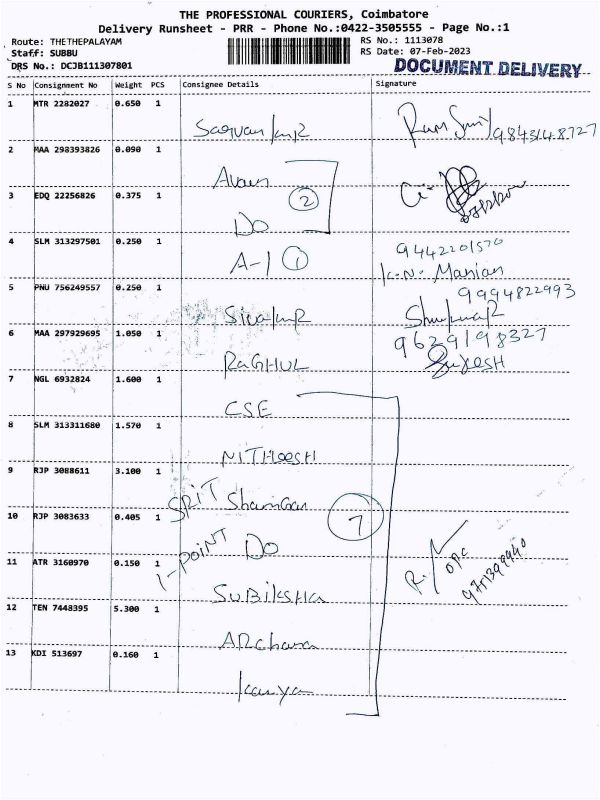 THE PROFESSIONAL COURIERS, Coimbatore
Delivery Runsheet - PRR - Phone No.:0422-3505555 - Page No.:1
Route: THETHEPALAYAM
RS No.: 1113078
Staff: SUBBU
RS Date: 07-Feb-2023
DRS No.: DCJB111307801
DOCUMENT DELIVERY
S No Consignment No Weight PCS Consignee Details Signature
1 MTR 2282027 0.650 1
9843148727
2 MAA 298393826 0.090 1
3 EDQ 22256826 0.375 1 Do
2
4 SLM 313297501 0.250 1 A-1 1
9442201570
K.N. Manian
5 PNU 756249557 0.250 1
9994822993
6 MAA 297929695 1.050 1 RAGHUL
9629198327
7 NGL 6932824 1.600 1 CSE
8 SLM 313311680 1.570 1 NITHOESH
9 RJP 3088611 3.100 1
SRIT
7
10 RJP 3083633 0.405 1 Do
1-POINT
11 ATR 3160970 0.150 1 SUBIKSHA
12 TEN 7448395 5.300 1 ARchana
13 KDI 513697 0.160 1 kavya